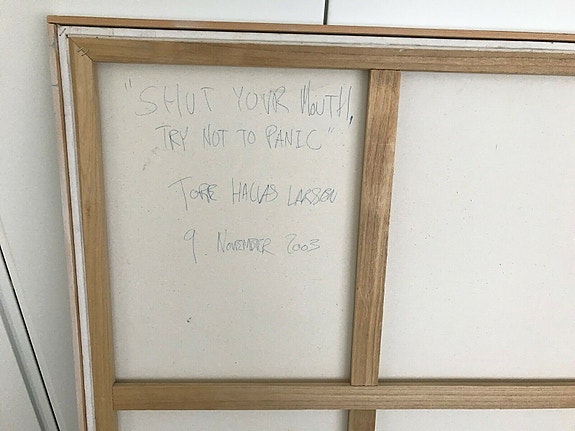 "SHUT YOUR MOUTH,
TRY NOT TO PANIC"
TORE HALLAS LARSEN
9 NOVEMBER 2003